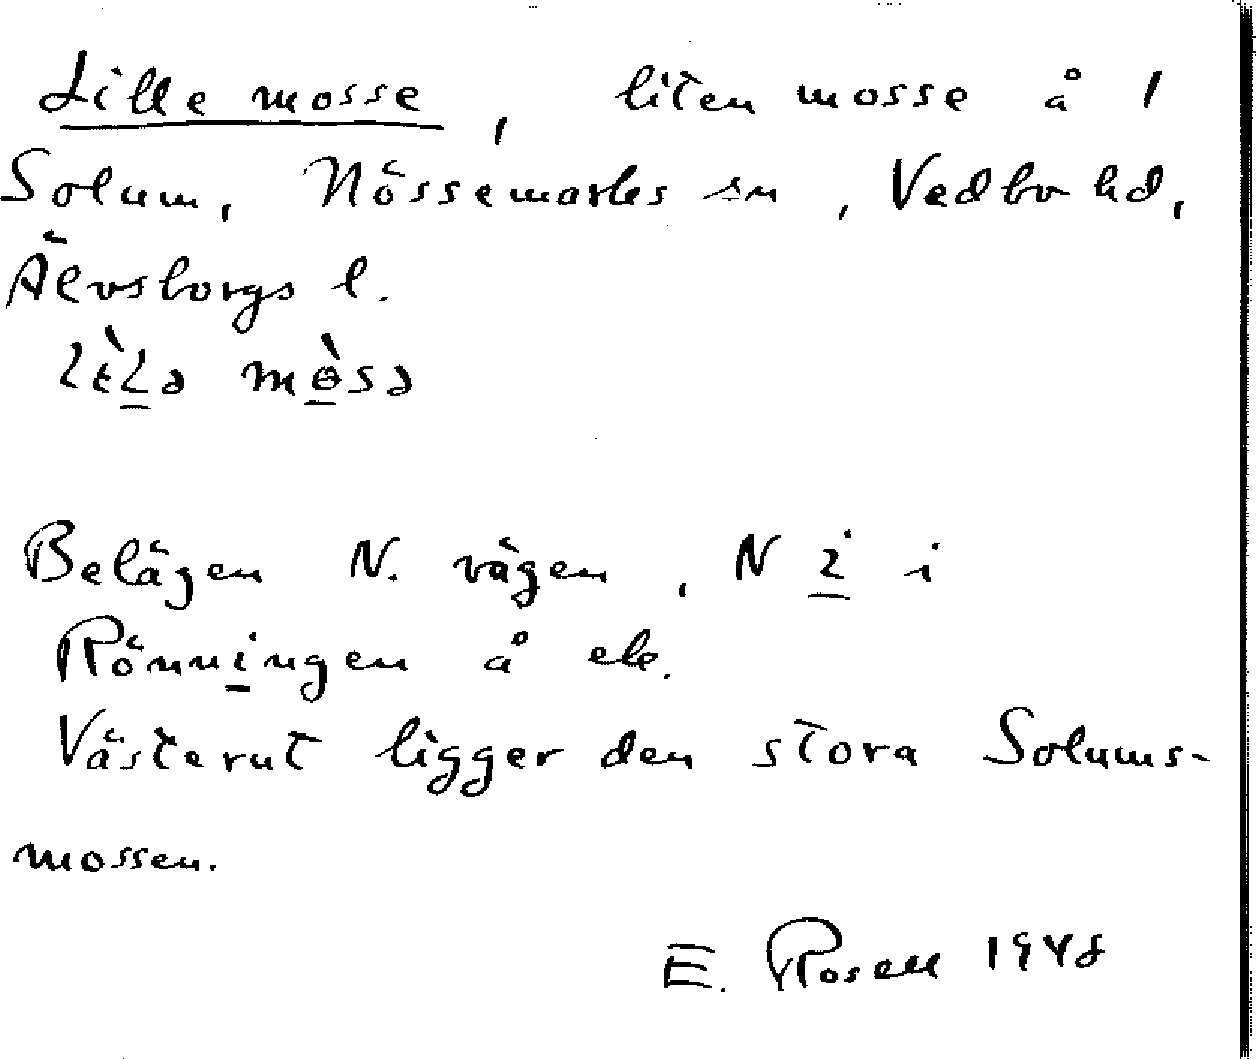 Lille mosse, liten mosse å 1
Solum, Nössemarks sn, Vedbo hd,
Älvsborgs l.
Belägen N. vägen, N 2 i
Rönningen å ek.
Västerut ligger den stora Solums-
mossen.
E. Rosell 1948